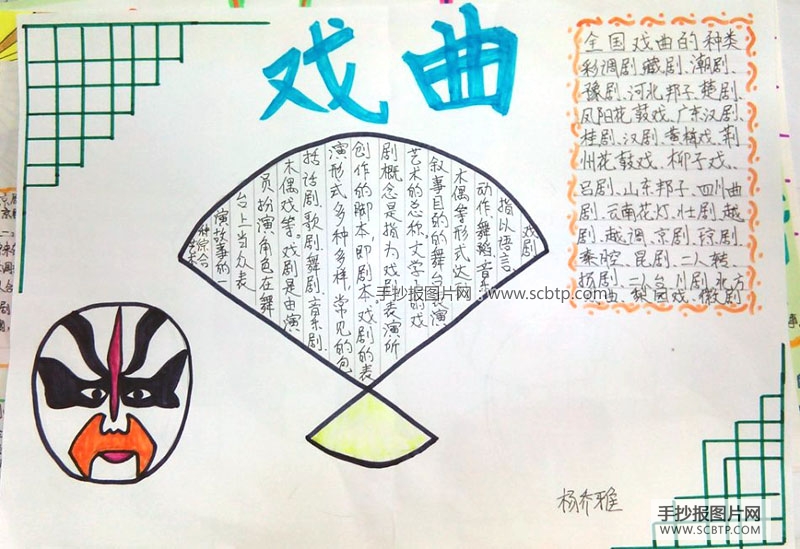 戏曲
全国戏曲的种类
彩调剧、藏剧、潮剧、
豫剧、河北邦子、楚剧、
凤阳花鼓戏、广东汉剧、
桂剧、汉剧、黄梅戏、荆
州花鼓戏、柳子戏、
吕剧、山东邦子、四川曲
剧、云南花灯、壮剧、越
剧、越调、京剧、琼剧、
秦腔、昆剧、二人转、
扬剧、二人台、川剧、北方
梨园戏、徽剧
戏剧
指以语言、
动作、舞蹈、音乐、
木偶等形式达到
叙事目的的舞台表演
艺术的总称。文学上的戏
剧概念是指为戏剧表演所
创作的脚本,即剧本。戏剧的表
演形式多种多样,常见的包
括话剧、歌剧、舞剧、音乐剧、
木偶戏等。戏剧是由演
员扮演角色在舞
台上当众表
演故事的一
种综合
艺术
手抄报图片网:www.scbtp.com
杨乔雅
手抄报图片网
WWW.SCBTP.COM